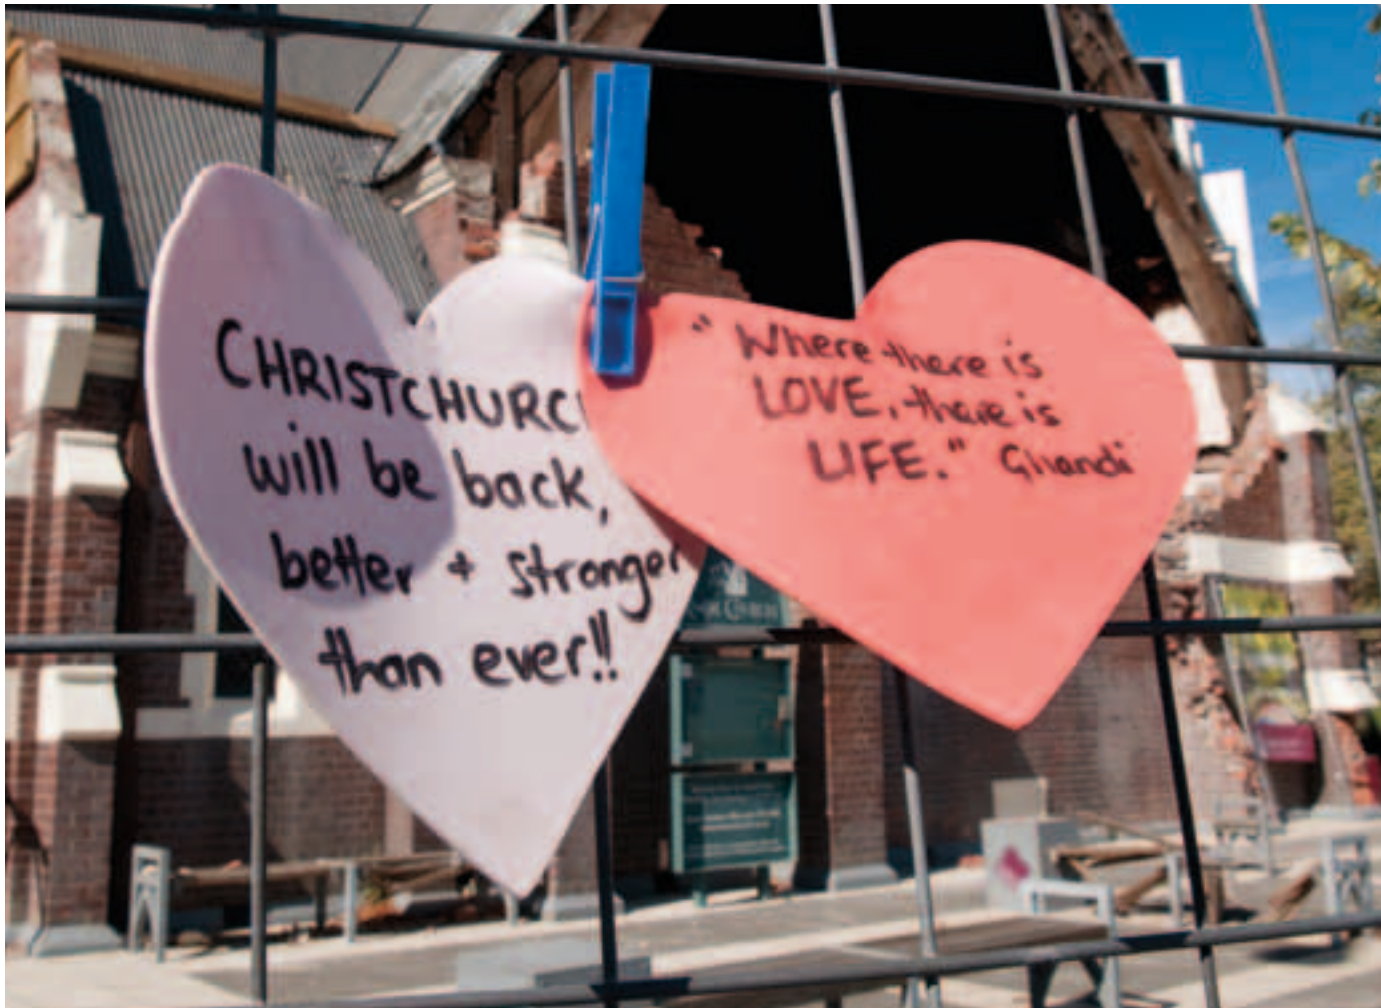 CHRISTCHURC
will be back,
better + stronger
than ever!!
"Where there is
LOVE, there is
LIFE." Ghandi